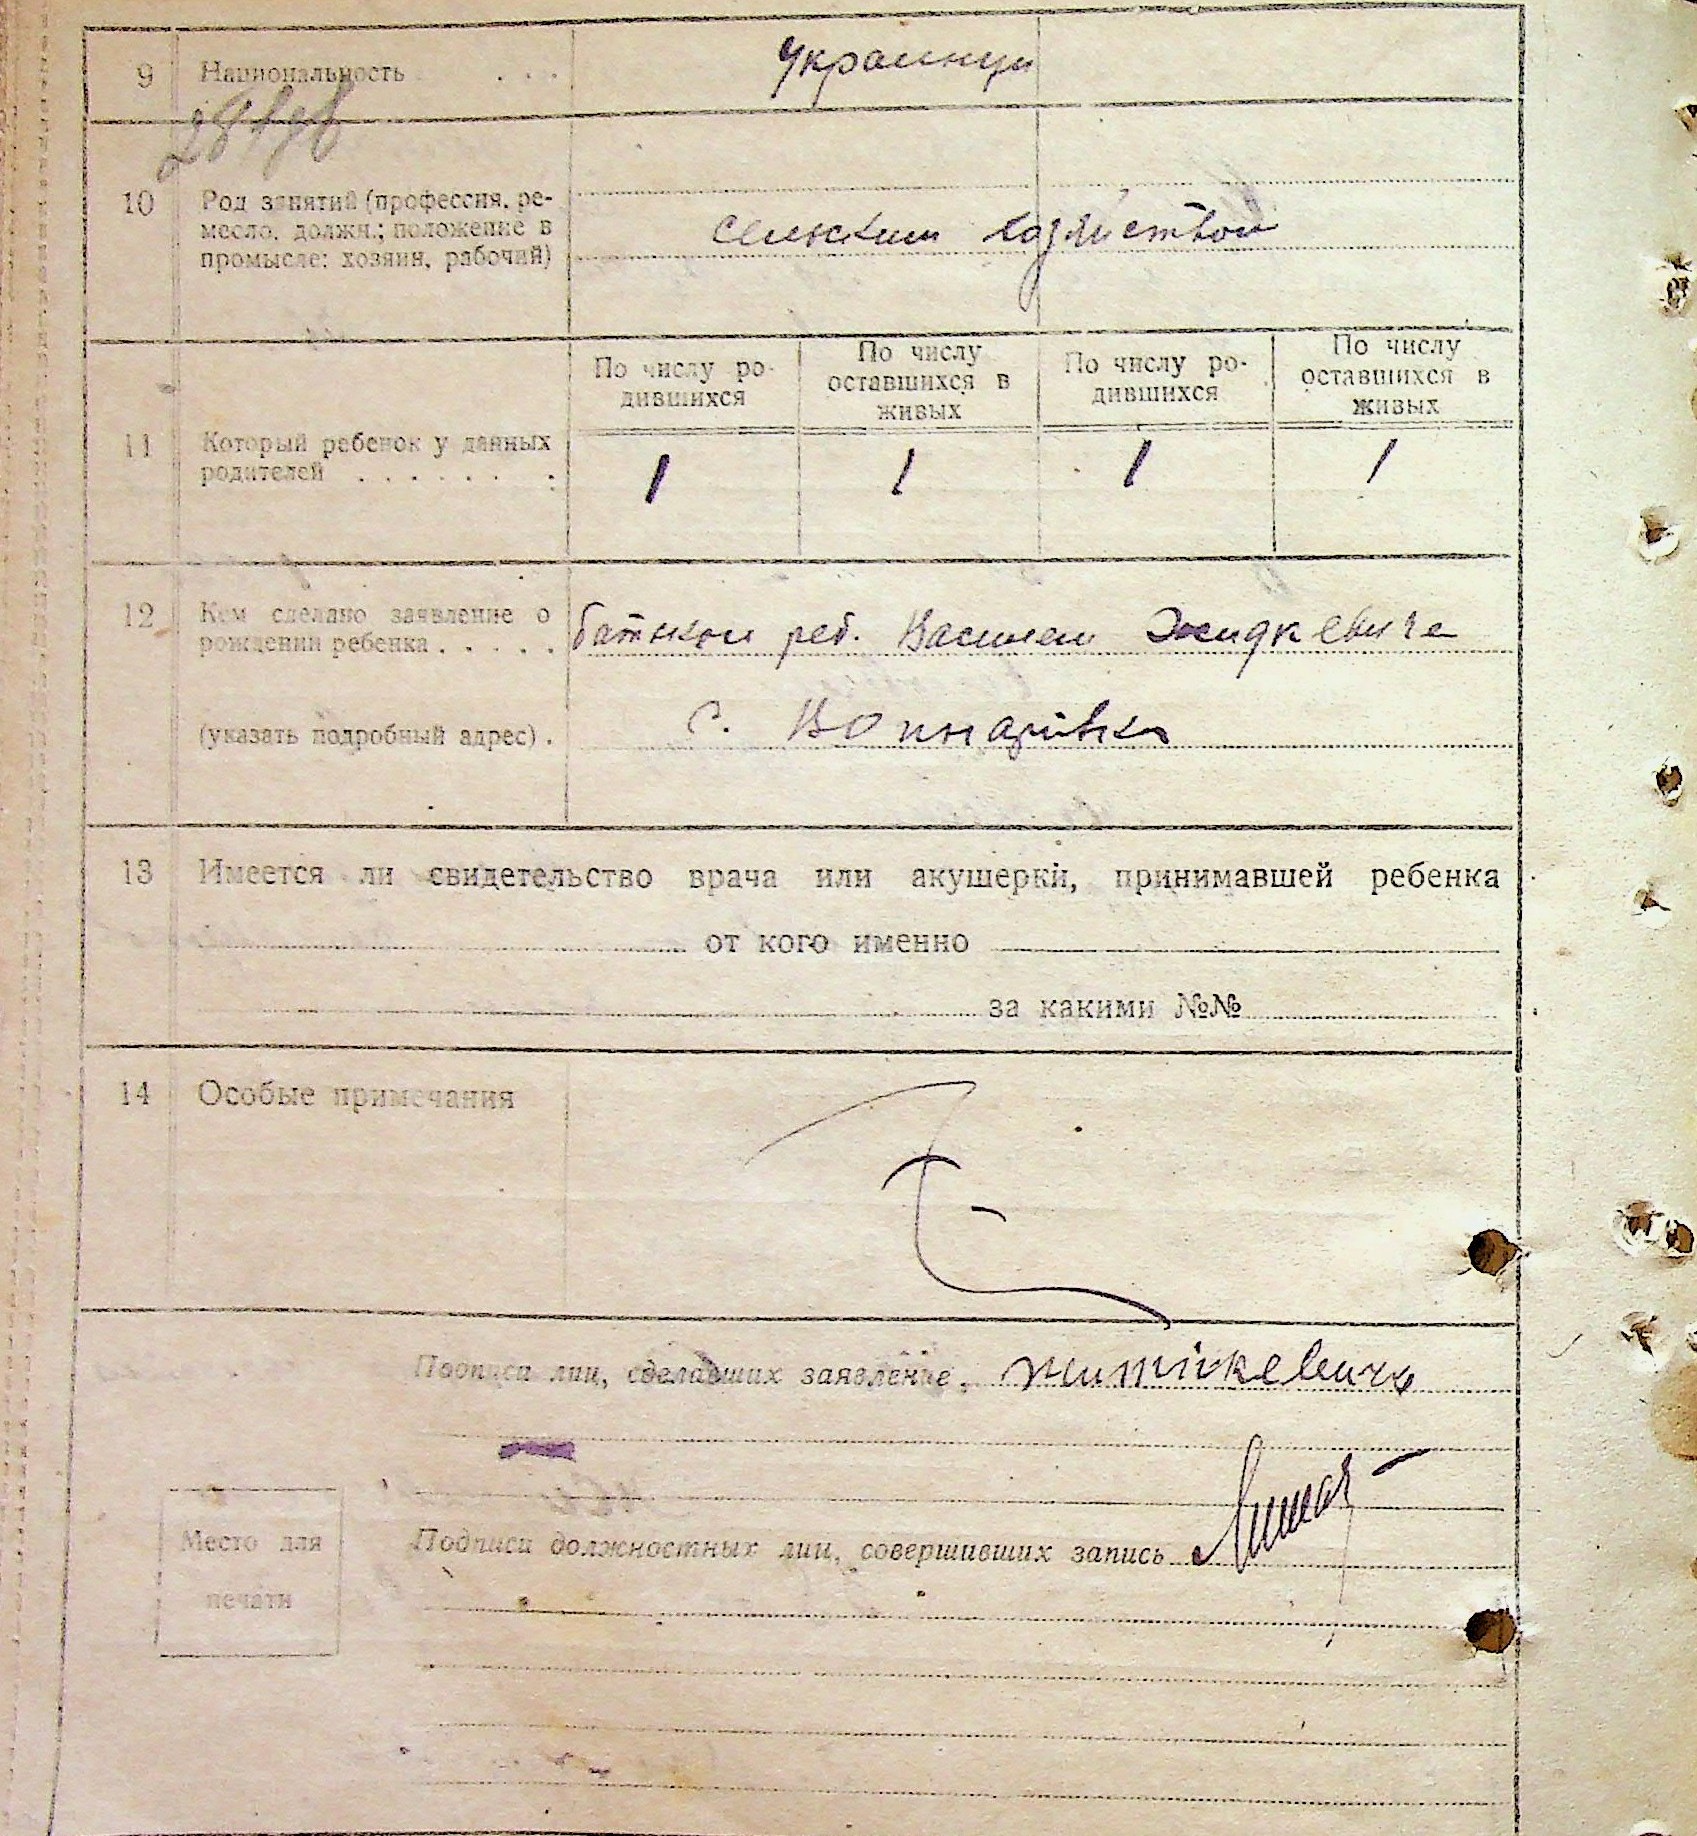 9 Национальность . . . Украинцы
10 Род занятий (профессия, ре-
месло, должн.; положение в
промысле: хозяин, рабочий)
сельским хозяйством
11 Который ребенок у данных
родителей . . . . . . .
По числу ро-
дившихся
По числу
оставшихся в
живых
По числу ро-
дившихся
По числу
оставшихся в
живых
1 1 1 1
12 Кем сделано заявление о
рождении ребенка . . . . .
батьком реб. Василем Жидкевиче
(указать подробный адрес) .
с.
13 Имеется ли свидетельство врача или акушерки, принимавшей ребенка
от кого именно
за какими №№
14 Особые примечания
Подписи лиц, сделавших заявление, Житкевичь
Подписи должностных лиц, совершивших запись
Место для
печати